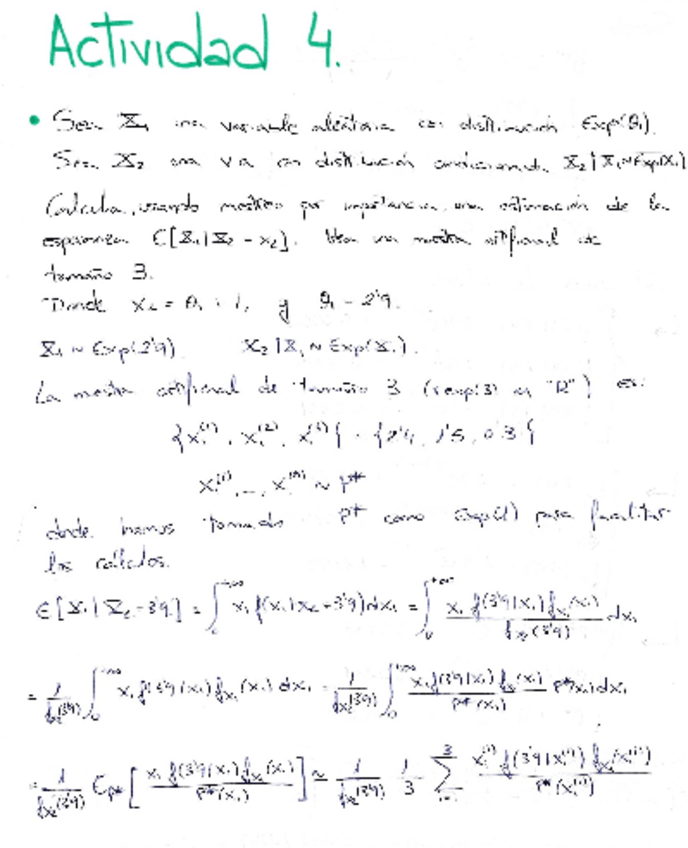 Actividad 4.
• Sea X₁ una variable aleatoria con distribución Exp(θ₁).
Sea X₂ una v.a con distribución condicionada X₂|X₁~Exp(X₁)
Calcula, usando muestreo por importancia, una estimación de la
esperanza E[X₁|X₂=x₂]. Usa una muestra artificial de
tamaño 3.
Donde x₂ = θ₁ + 1, y θ₁ = 2'9.
X₁ ~ Exp(2'9) X₂|X₁ ~ Exp(X₁).
La muestra artificial de tamaño 3 (rexp(3) en "R") es:
{x₁⁽¹⁾, x₁⁽²⁾, x₁⁽³⁾} = {2'4, 1'5, 0'3}
x₁⁽¹⁾, ..., x₁⁽ᵐ⁾ ~ p*
donde hemos tomado p* como Exp(1) para facilitar
los cálculos.
E[X₁|X₂=3'9] = ∫₀^{+∞} x₁ f(x₁|x₂=3'9)dx₁ = ∫₀^{+∞} x₁ f(3'9|x₁) f_{x₁}(x₁) / f_{x₂}(3'9) dx₁
= 1/f_{x₂}(3'9) ∫₀^{+∞} x₁ f(3'9|x₁) f_{x₁}(x₁) dx₁ = 1/f_{x₂}(3'9) ∫₀^{+∞} x₁ f(3'9|x₁) f_{x₁}(x₁) / p*(x₁) p*(x₁) dx₁
= 1/f_{x₂}(3'9) E_{p*}[x₁ f(3'9|x₁) f_{x₁}(x₁) / p*(x₁)] ≈ 1/f_{x₂}(3'9) 1/3 Σ_{i=1}^{3} x₁⁽ⁱ⁾ f(3'9|x₁⁽ⁱ⁾) f_{x₁}(x₁⁽ⁱ⁾) / p*(x₁⁽ⁱ⁾)